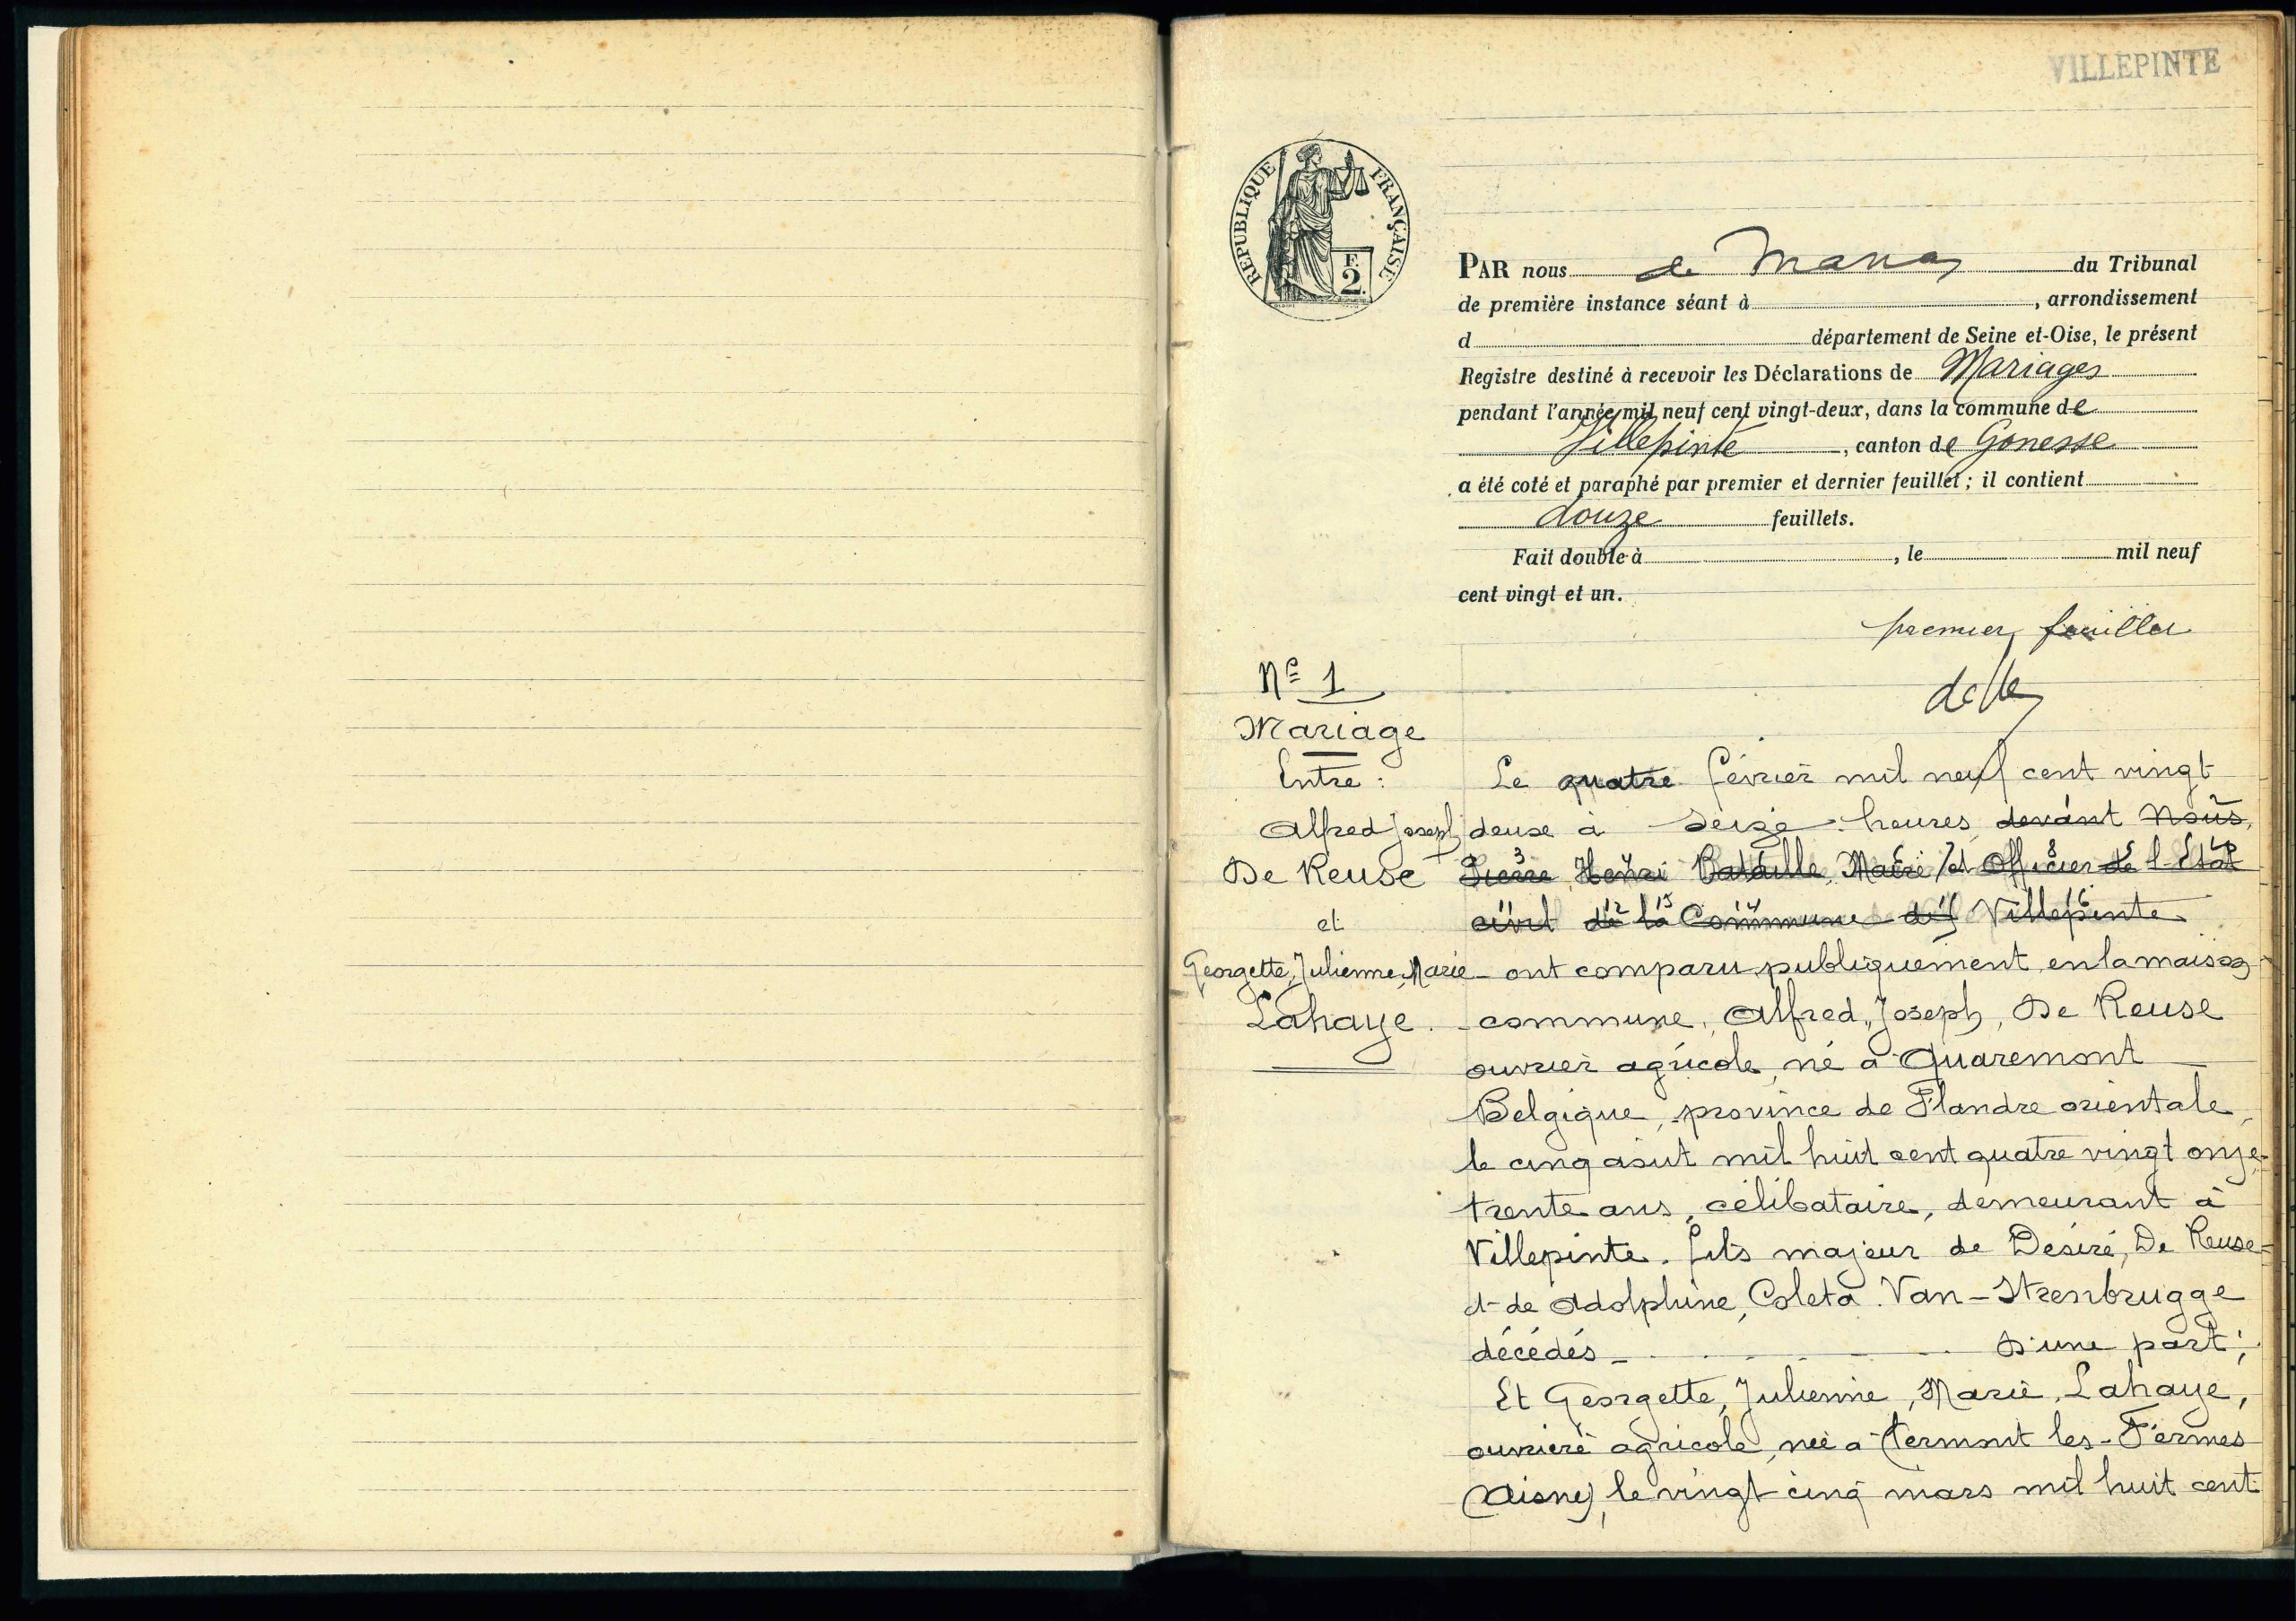 VILLEPINTE
RÉPUBLIQUE FRANÇAISE
F.
2.
PAR nous de du Tribunal
de première instance séant à , arrondissement
d département de Seine et-Oise, le présent
Registre destiné à recevoir les Déclarations de Mariages
pendant l'année mil neuf cent vingt-deux, dans la commune de
Villepinte, canton de Gonesse
a été coté et paraphé par premier et dernier feuillet ; il contient
douze feuillets.
Fait double à , le mil neuf
cent vingt et un.
premier feuillet
Nº 1
Mariage
Entre :
Alfred Joseph
De Keuse
et
Georgette, Julienne, Marie
Lahaye.
Le quatre février mil neuf cent vingt
deux à seize heures devant Nous,
Pierre Henri Bataille, Maire et Officier de l'Etat
civil de la Commune de Villepinte
ont comparu publiquement en la maison
commune, Alfred, Joseph, De Keuse
ouvrier agricole, né à Quaremont
Belgique, province de Flandre orientale,
le cinq août mil huit cent quatre vingt onze
trente ans, célibataire, demeurant à
Villepinte. fils majeur de Désiré, De Keuse
et de Adolphine, Coleta. Van-Strenbrugge
décédés D'une part ;
Et Georgette, Julienne, Marie, Lahaye,
ouvrière agricole, née à Clermont les-Fermes
(Aisne), le vingt cinq mars mil huit cent